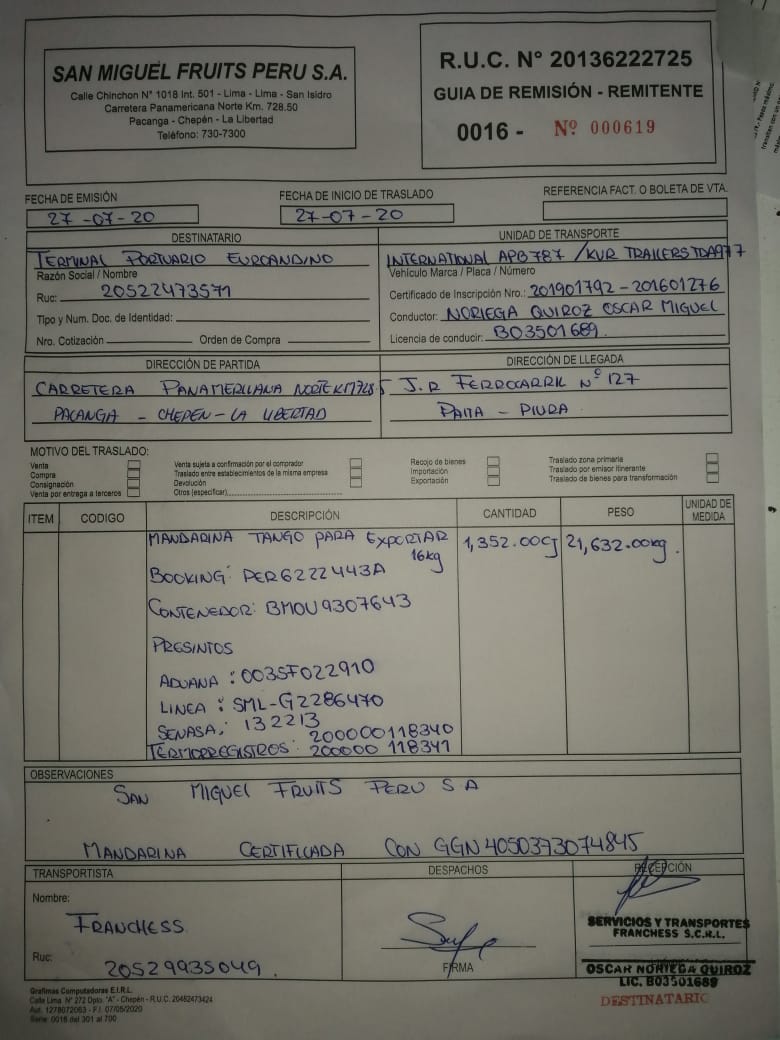 SAN MIGUEL FRUITS PERU S.A.
Calle Chinchon N° 1018 Int. 501 - Lima - Lima - San Isidro
Carretera Panamericana Norte Km. 728.50
Pacanga - Chepén - La Libertad
Teléfono: 730-7300
R.U.C. N° 20136222725
GUIA DE REMISIÓN - REMITENTE
0016 - Nº 000619
FECHA DE EMISIÓN
27-07-20
FECHA DE INICIO DE TRASLADO
27-07-20
REFERENCIA FACT. O BOLETA DE VTA.
DESTINATARIO
TERMINAL PORTUARIO EUROANDINO
Razón Social / Nombre
Ruc: 20522473571
Tipo y Num. Doc. de Identidad:
Nro. Cotización Orden de Compra
UNIDAD DE TRANSPORTE
INTERNATIONAL APB787 / KUR TRAILERS TDA977
Vehículo Marca / Placa / Número
Certificado de Inscripción Nro.: 201901792 - 201601276
Conductor: NORIEGA QUIROZ OSCAR MIGUEL
Licencia de conducir: B03501689
DIRECCIÓN DE PARTIDA
CARRETERA PANAMERICANA NORTE KM728.5
PACANGA - CHEPÉN - LA LIBERTAD
DIRECCIÓN DE LLEGADA
J.R FERROCARRIL N° 127
PAITA - PIURA
MOTIVO DEL TRASLADO:
Venta
Compra
Consignación
Venta por entrega a terceros
Venta sujeta a confirmación por el comprador
Traslado entre establecimientos de la misma empresa
Devolución
Otros (especificar)
Recojo de bienes
Importación
Exportación
Traslado zona primaria
Traslado por emisor itinerante
Traslado de bienes para transformación
ITEM CODIGO DESCRIPCIÓN CANTIDAD PESO UNIDAD DE MEDIDA
MANDARINA TANGO PARA EXPORTAR 1,352.00CJ 21,632.00kg.
16kg
BOOKING: PER6222443A
CONTENEDOR: BMOU9307643
PRESINTOS
ADUANA: 003SF022910
LINEA: SML-G2286470
SENASA: 132213
200000118340
TERMORREGISTROS: 200000 118341
OBSERVACIONES
SAN MIGUEL FRUITS PERU S A
MANDARINA CERTIFICADA CON GGN 4050373074845
TRANSPORTISTA
Nombre:
FRANCHESS
Ruc:
20529935049.
DESPACHOS
FIRMA
RECEPCIÓN
SERVICIOS Y TRANSPORTES
FRANCHESS S.C.R.L.
OSCAR NORIEGA QUIROZ
LIC. B03501689
DESTINATARIO
Grafimas Computadoras E.I.R.L.
Calle Lima N° 272 Dpto. "A" - Chepén - R.U.C. 20482473424
Aut. 1278072063 - F.I. 07/05/2020
Serie: 0016 del 301 al 700